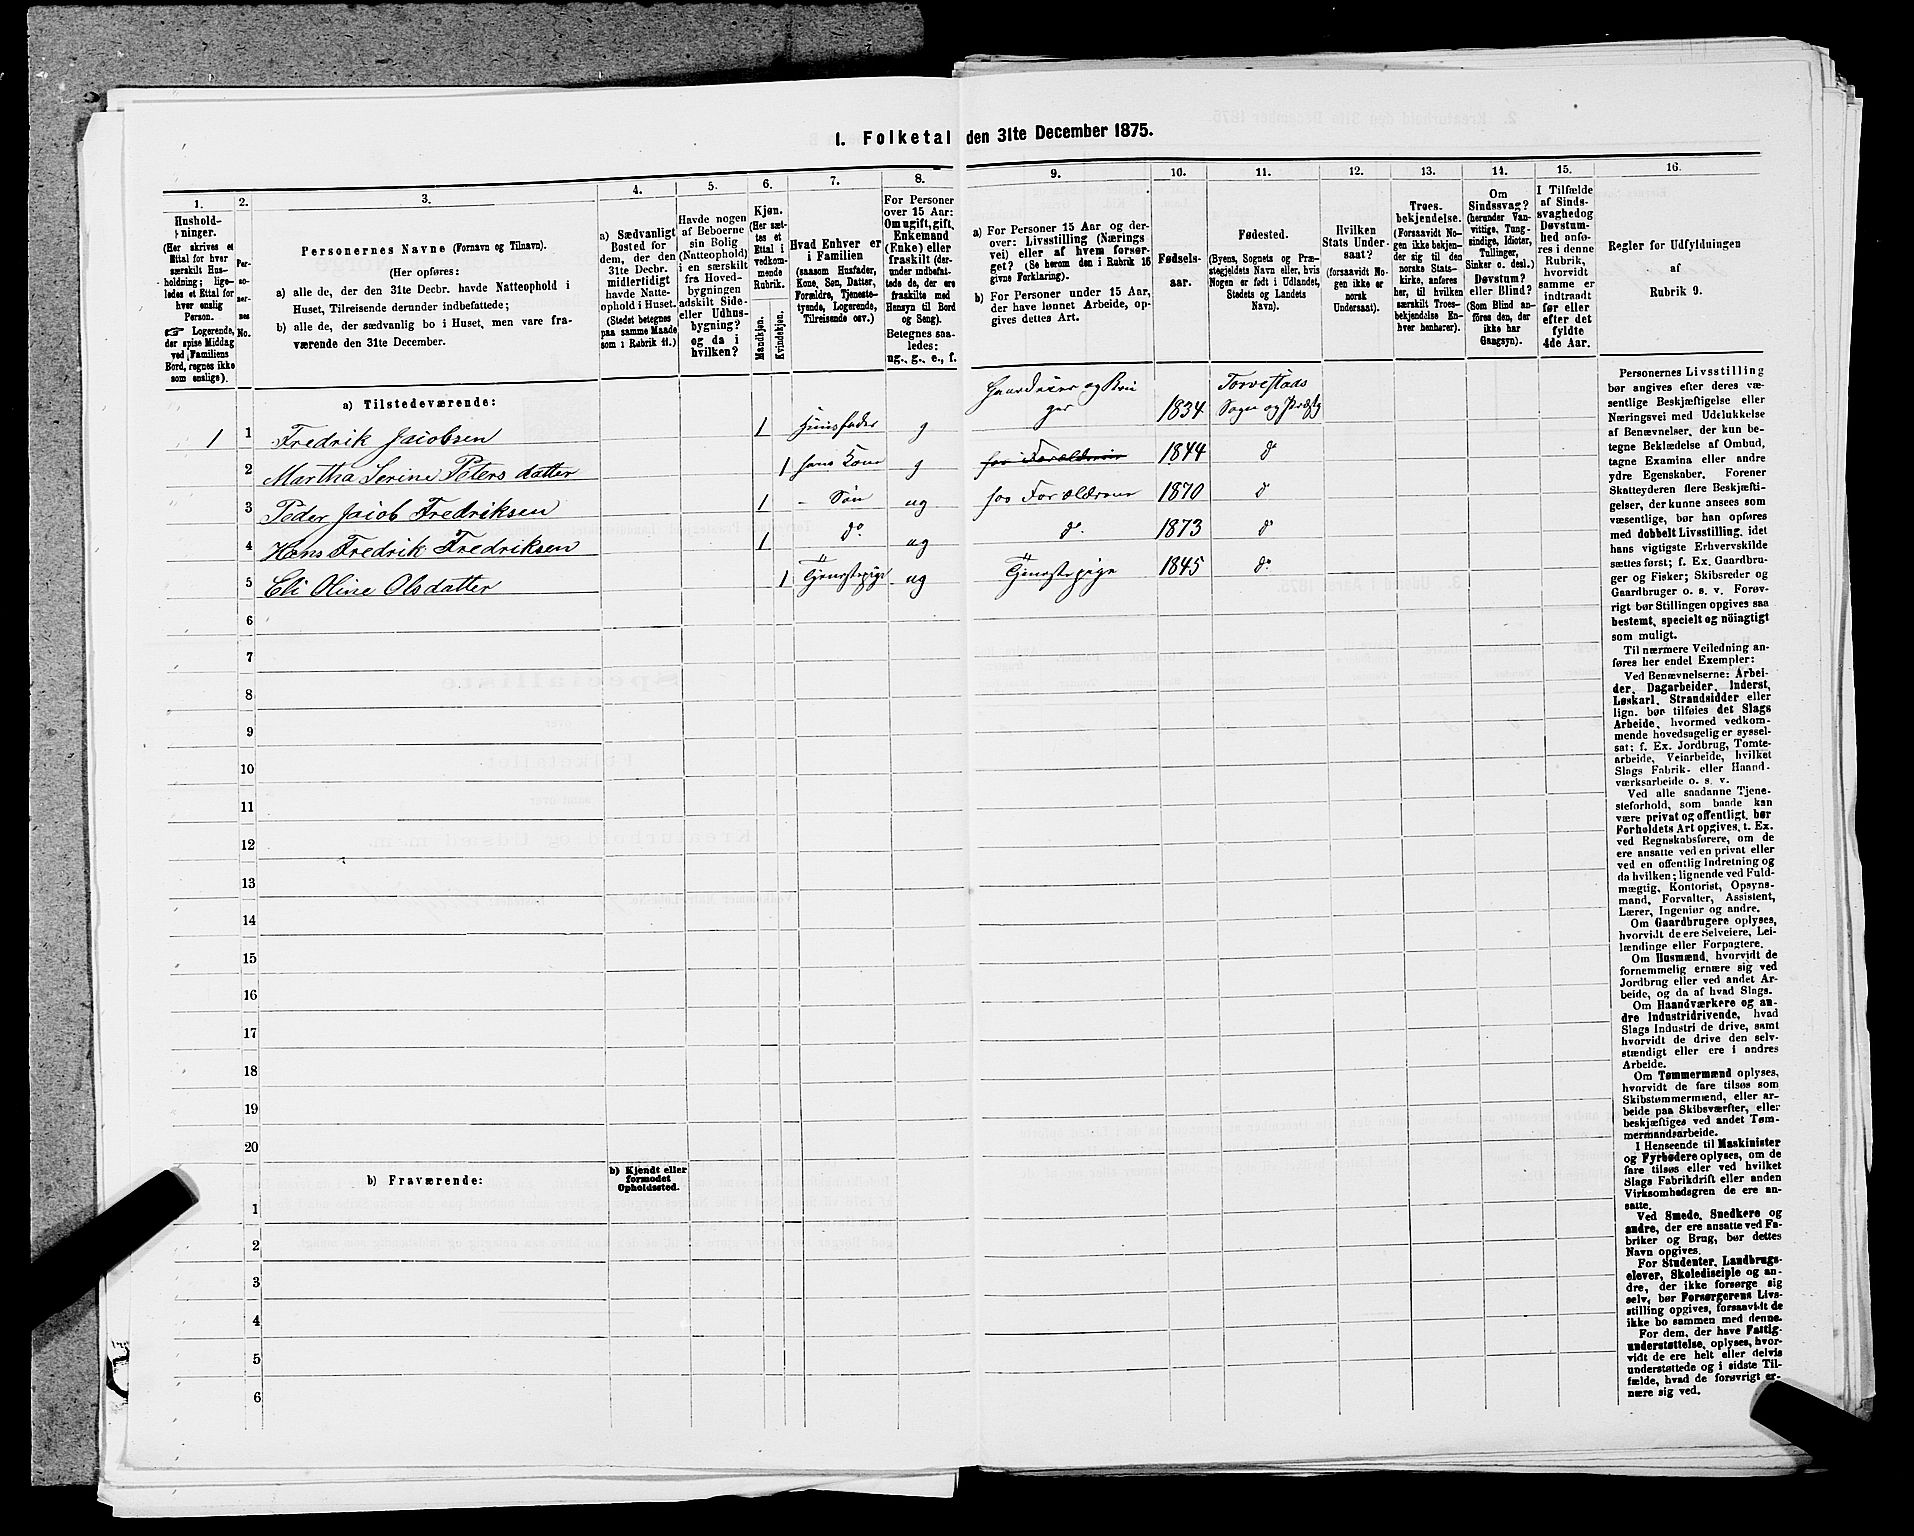 1. Folketal den 31te December 1875.
1. 2. 3. 4. 5. 6. 7. 8. 9. 10. 11. 12. 13. 14. 15. 16.
Hushold-
ninger.
(Her skrives et
Ettal for hver
særskilt Hus-
holdning; lige-
ledes et Ettal for
hver enslig
Person.
☞ Logerende,
der spise Middag
ved Familiens
Bord, regnes ikke
som enslige).
Per-
so-
ner-
nes
No.
Personernes Navne (Fornavn og Tilnavn).
(Her opføres:
a) alle de, der den 31te Decbr. havde Natteophold i
Huset, Tilreisende derunder indbefattede;
b) alle de, der sædvanlig bo i Huset, men vare fra-
værende den 31te December.
a) Sædvanligt
Bosted for
dem, der den
31te Decbr.
midlertidigt
havde Natte-
ophold i Huset.
(Stedet betegnes
paa samme Maade
som i Rubrik 11.)
Havde nogen
af Beboerne
sin Bolig
(Natteophold)
i en særskilt
fra Hoved-
bygningen
adskilt Side-
eller Udhus-
bygning?
og da i
hvilken?
Kjøn.
(Her sæt-
tes et
Ettal i
vedkom-
mende
Rubrik.
Mandkjøn.
Kvindekjøn.
Hvad Enhver er
i Familien
(saasom Husfader,
Kone, Søn, Datter,
Forældre, Tjeneste-
tyende, Logerende,
Tilreisende osv.)
For Personer
over 15 Aar:
Om ugift, gift,
Enkemand
(Enke) eller
fraskilt (der-
under indbefat-
tede de, der ere
fraskilte med
Hensyn til Bord
og Seng).
Betegnes saa-
ledes:
ug., g., e., f.
a) For Personer 15 Aar og der-
over: Livsstilling (Nærings
vei) eller af hvem forsør-
get? (Se herom den i Rubrik 16
givne Forklaring).
b) For Personer under 15 Aar,
der have lønnet Arbeide, op-
gives dettes Art.
Fødsels-
aar.
Fødested.
(Byens, Sognets og Præ-
stegjeldets Navn, eller, hvis
Nogen er født i Udlandet,
Stedets og Landets
Navn).
Hvilken
Stats Under-
saat?
(forsaavidt No-
gen ikke er
norsk
Undersaat).
Troes-
bekjendelse.
(Forsaavidt No-
gen ikke bekjen-
der sig til den
norske Stats-
kirke, anføres
her, til hvilken
særskilt Troes-
bekjendelse En-
hver henhører).
Om
Sindssvag?
(herunder Van-
vittige, Tung-
sindige, Idioter,
Tullinger,
Sinker o. desl.)
Døvstum?
eller Blind?
(Som Blind an-
føres den, der
ikke har
Gangsyn).
I Tilfælde
af Sinds-
svaghed og
Døvstum-
hed anfø-
res i denne
Rubrik,
hvorvidt
samme er
indtraadt
før eller
efter det
fyldte
4de Aar.
Regler for Udfyldningen
af
Rubrik 9.
a) Tilstedeværende:
1 1 Fredrik Jacobsen 1 Huusfader g Gaardeier og Bru
ger 1834 Torvestads
Sogn og Præstg
2 Martha Serine Peters datter 1 hans Kone g hos Forældrene 1844 do
3 Peder Jacob Fredriksen 1 - Søn ug hos Forældrene 1870 do
4 Hans Fredrik Fredriksen 1 do ug do 1873 do
5 Eli Oline Olsdatter 1 Tjenestepige ug Tjenestepige 1845 do
6
7
8
9
10
11
12
13
14
15
16
17
18
19
20
b) Fraværende:
b) Kjendt eller
formodet
Opholdssted.
1
2
3
4
5
6
Personernes Livsstilling
bør angives efter deres væ-
sentlige Beskjæftigelse eller
Næringsvei med Udelukkelse
af Benævnelser, der kun be-
tegne Beklædelse af Ombud,
tagne Examina eller andre
ydre Egenskaber. Forener
Skatteyderen flere Beskjæfti-
gelser, der kunne ansees som
væsentlige, bør han opføres
med dobbelt Livsstilling, idet
hans vigtigste Erhvervskilde
sættes først; f. Ex. Gaardbru-
ger og Fisker; Skibsreder og
Gaardbruger o. s. v. Forøv-
rigt bør Stillingen opgives saa
bestemt, specielt og nöiagtigt
som muligt.
Til nærmere Veiledning an-
føres her endel Exempler:
Ved Benævnelserne: Arbei-
der, Dagarbeider, Inderst,
Løskarl, Strandsidder eller
lign. bør tilføies det Slags
Arbeide, hvormed vedkom-
mende hovedsagelig er syssel-
sat; f. Ex. Jordbrug, Tomte-
arbeide, Veiarbeide, hvilket
Slags Fabrik- eller Haand-
værksarbeide o. s. v.
Ved alle saadanne Tjene-
steforhold, som baade kan
være privat og offentligt, bør
Forholdets Art opgives, t. Ex.
ved Regnskabsførere, om de
ere ansatte ved en privat eller
ved en offentlig Indretning og
da hvilken; lignende ved Fuld-
mægtig, Kontorist, Opsyns-
mand, Forvalter, Assistent,
Lærer, Ingeniør og andre.
Om Gaardbrugere oplyses,
hvorvidt de ere Selveiere, Lei-
lændinge eller Forpagtere.
Om Husmænd, hvorvidt de
fornemmelig ernære sig ved
Jordbrug eller ved andet Ar-
beide, og da af hvad Slags.
Om Haandværkere og an-
dre Industridrivende, hvad
Slags Industri de drive, samt
hvorvidt de drive den selv-
stændigt eller ere i andres
Arbeide.
Om Tømmermænd oplyses,
hvorvidt de fare tilsøs som
Skibstømmermænd, eller ar-
beide paa Skibsværfter, eller
beskjæftiges ved andet Tøm-
mermandsarbeide.
I Henseende til Maskinister
og Fyrbødere oplyses, om de
fare tilsøs eller ved hvilket
Slags Fabrikdrift eller anden
Virksomhedsgren de ere an-
satte.
Ved Smede, Snedkere og
andre, der ere ansatte ved Fa-
briker og Brug, bør dettes
Navn opgives.
For Studenter, Landbrugs-
elever, Skoledisciple og an-
dre, der ikke forsørge sig
selv, bør Forsørgerens Livs-
stilling opgives, forsaavidt de
ikke bo sammen med denne.
For dem, der have Fattig-
understøttelse, oplyses, hvor-
vidt de ere helt eller delvis
understøttede og i sidste Til-
fælde, hvad de forøvrigt er-
nære sig ved.